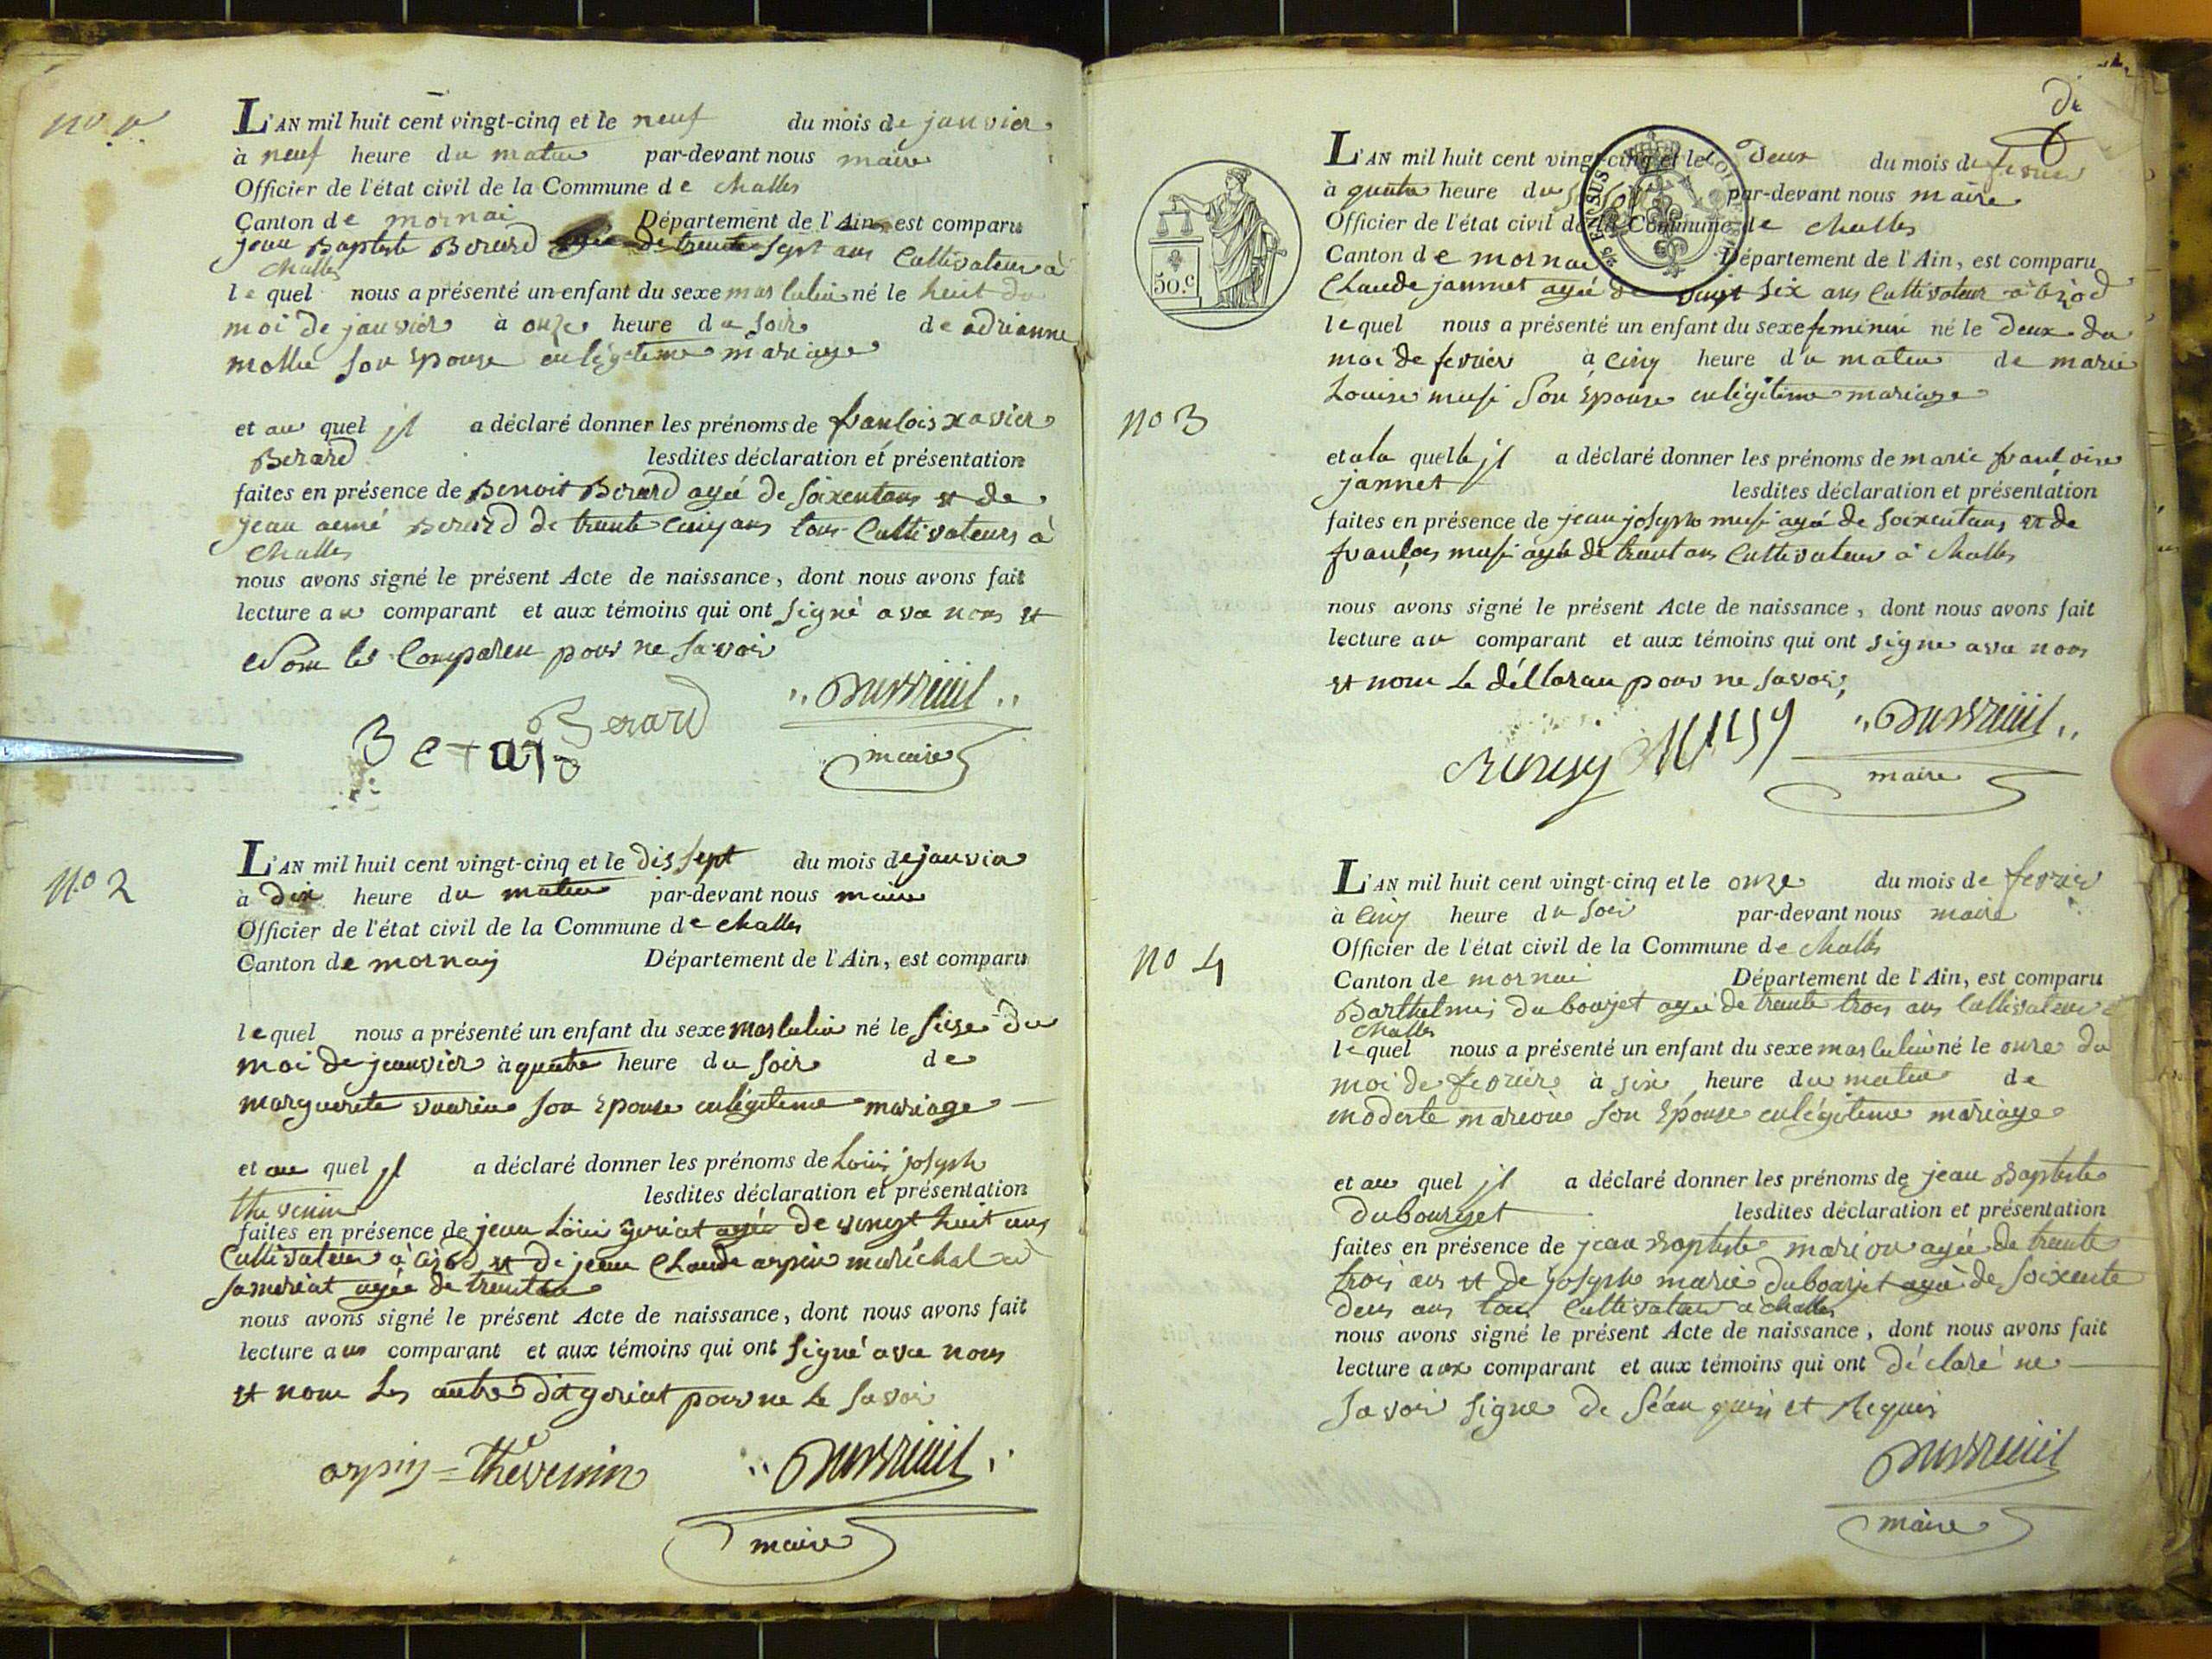 L'AN mil huit cent vingt-cinq et le neuf du mois de janvier
à neuf heure du matin par-devant nous maire
Officier de l'état civil de la Commune de challes
Canton de mornai Département de l'Ain, est comparu
jean Baptiste Berard agée de trante sept ans Cultivateur à
challes
le quel nous a présenté un enfant du sexe masculin né le huit du
moi de janvier à onze heure du soir de adrianne
mollie son Epouse en légitime mariage
et au quel jl a déclaré donner les prénoms de francois xavier
Berard lesdites déclaration et présentation
faites en présence de Benoit Berard agée de soixentans et de
jean aemé Berard de trante cinq ans tous Cultivateurs à
Challes
nous avons signé le présent Acte de naissance, dont nous avons fait
lecture au comparant et aux témoins qui ont signé avec nous et
Non les Comparen pour ne savoir
Berard
Berard
Dubreüil
maire
no 2
L'AN mil huit cent vingt-cinq et le dis sept du mois de janvier
à dix heure du matin par-devant nous maire
Officier de l'état civil de la Commune de challes
Canton de mornay Département de l'Ain, est comparu
le quel nous a présenté un enfant du sexe masculin né le seise du
moi de janvier à quatre heure du soir de
marguerite vuarin son Epouse en légiteme mariage
et au quel jl a déclaré donner les prénoms de Louis joseph
thevenin lesdites déclaration et présentation
faites en présence de jean Louis goriat agée de vingt huit ans
Cultivateur à Cizod et de jean Claude arpin maréchal a
Samoriat agée de trentan
nous avons signé le présent Acte de naissance, dont nous avons fait
lecture au comparant et aux témoins qui ont signé avec nous
et non les autre dit goriat pour ne le savoir
arpin = thevenin
Dubreüil
maire
50.c
L'AN mil huit cent vingt-cinq et le deux du mois de fevrier
à quatre heure du soir par-devant nous maire
Officier de l'état civil de la Commune de challes
Canton de mornai Département de l'Ain, est comparu
Claude jannet agée de vingt six ans Cultivateur à
le quel nous a présenté un enfant du sexe feminin né le deux du
moi de fevrier à cinq heure du matin de marie
Louise musi son Epouse en légitime mariage
no 3
et a la quelle jl a déclaré donner les prénoms de marie francoise
jannet lesdites déclaration et présentation
faites en présence de jean joseph musi agée de soixentans et de
françois musi agée de trantans Cultivateur à challes
nous avons signé le présent Acte de naissance, dont nous avons fait
lecture au comparant et aux témoins qui ont signe avec nous
et non le déllaran pour ne savoir,
Musy
Dubreüil
maire
L'AN mil huit cent vingt-cinq et le onze du mois de fevrier
à cinq heure du soir par-devant nous maire
Officier de l'état civil de la Commune de challes
no 4
Canton de mornai Département de l'Ain, est comparu
Barthelmi Dubourjet agée de trante trois ans Cultivateur à
challes
le quel nous a présenté un enfant du sexe masculin né le onze du
moi de fevrier à six heure du matin de
modeste marion son Epouse en légitime mariage
et au quel jl a déclaré donner les prénoms de jean Baptiste
Dubourget lesdites déclaration et présentation
faites en présence de jean Baptiste marion agée de trante
trois ans et de joseph marie dubourjet agée de soixente
deus ans tous Cultivateur à challes
nous avons signé le présent Acte de naissance, dont nous avons fait
lecture aux comparant et aux témoins qui ont déclaré ne
savoir signer de séan quis et requis
Dubreüil
maire